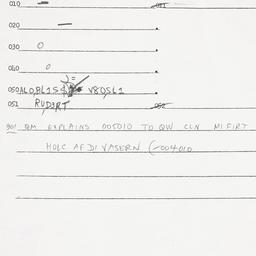 010 — 011
020 —
030 0
040 0
050 V80561
051 RUDORT 052
901 QM EXPLAINS 005010 TO QW CLN MIFIRT
HOLC AF DI VASERN (-004010